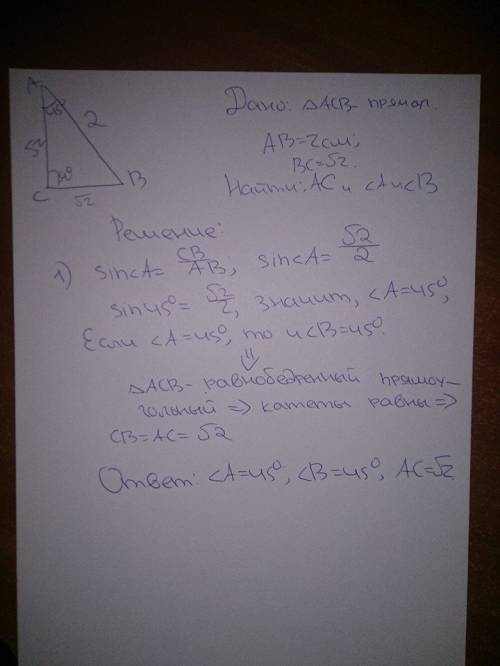 A
45°
2
√2
90°
C
B
√2
Дано: △ACB - прямоуг.
AB=2см;
BC=√2.
Найти: AC и <A и <B
Решение:
1) sin<A= CB/AB; sin<A= √2/2
sin45°= √2/2, значит, <A=45°,
Если <A=45°, то и <B=45°.
⇓
△ACB - равнобедренный прямоу-
гольный => катеты равны =>
CB=AC= √2
Ответ: <A=45°, <B=45°, AC=√2